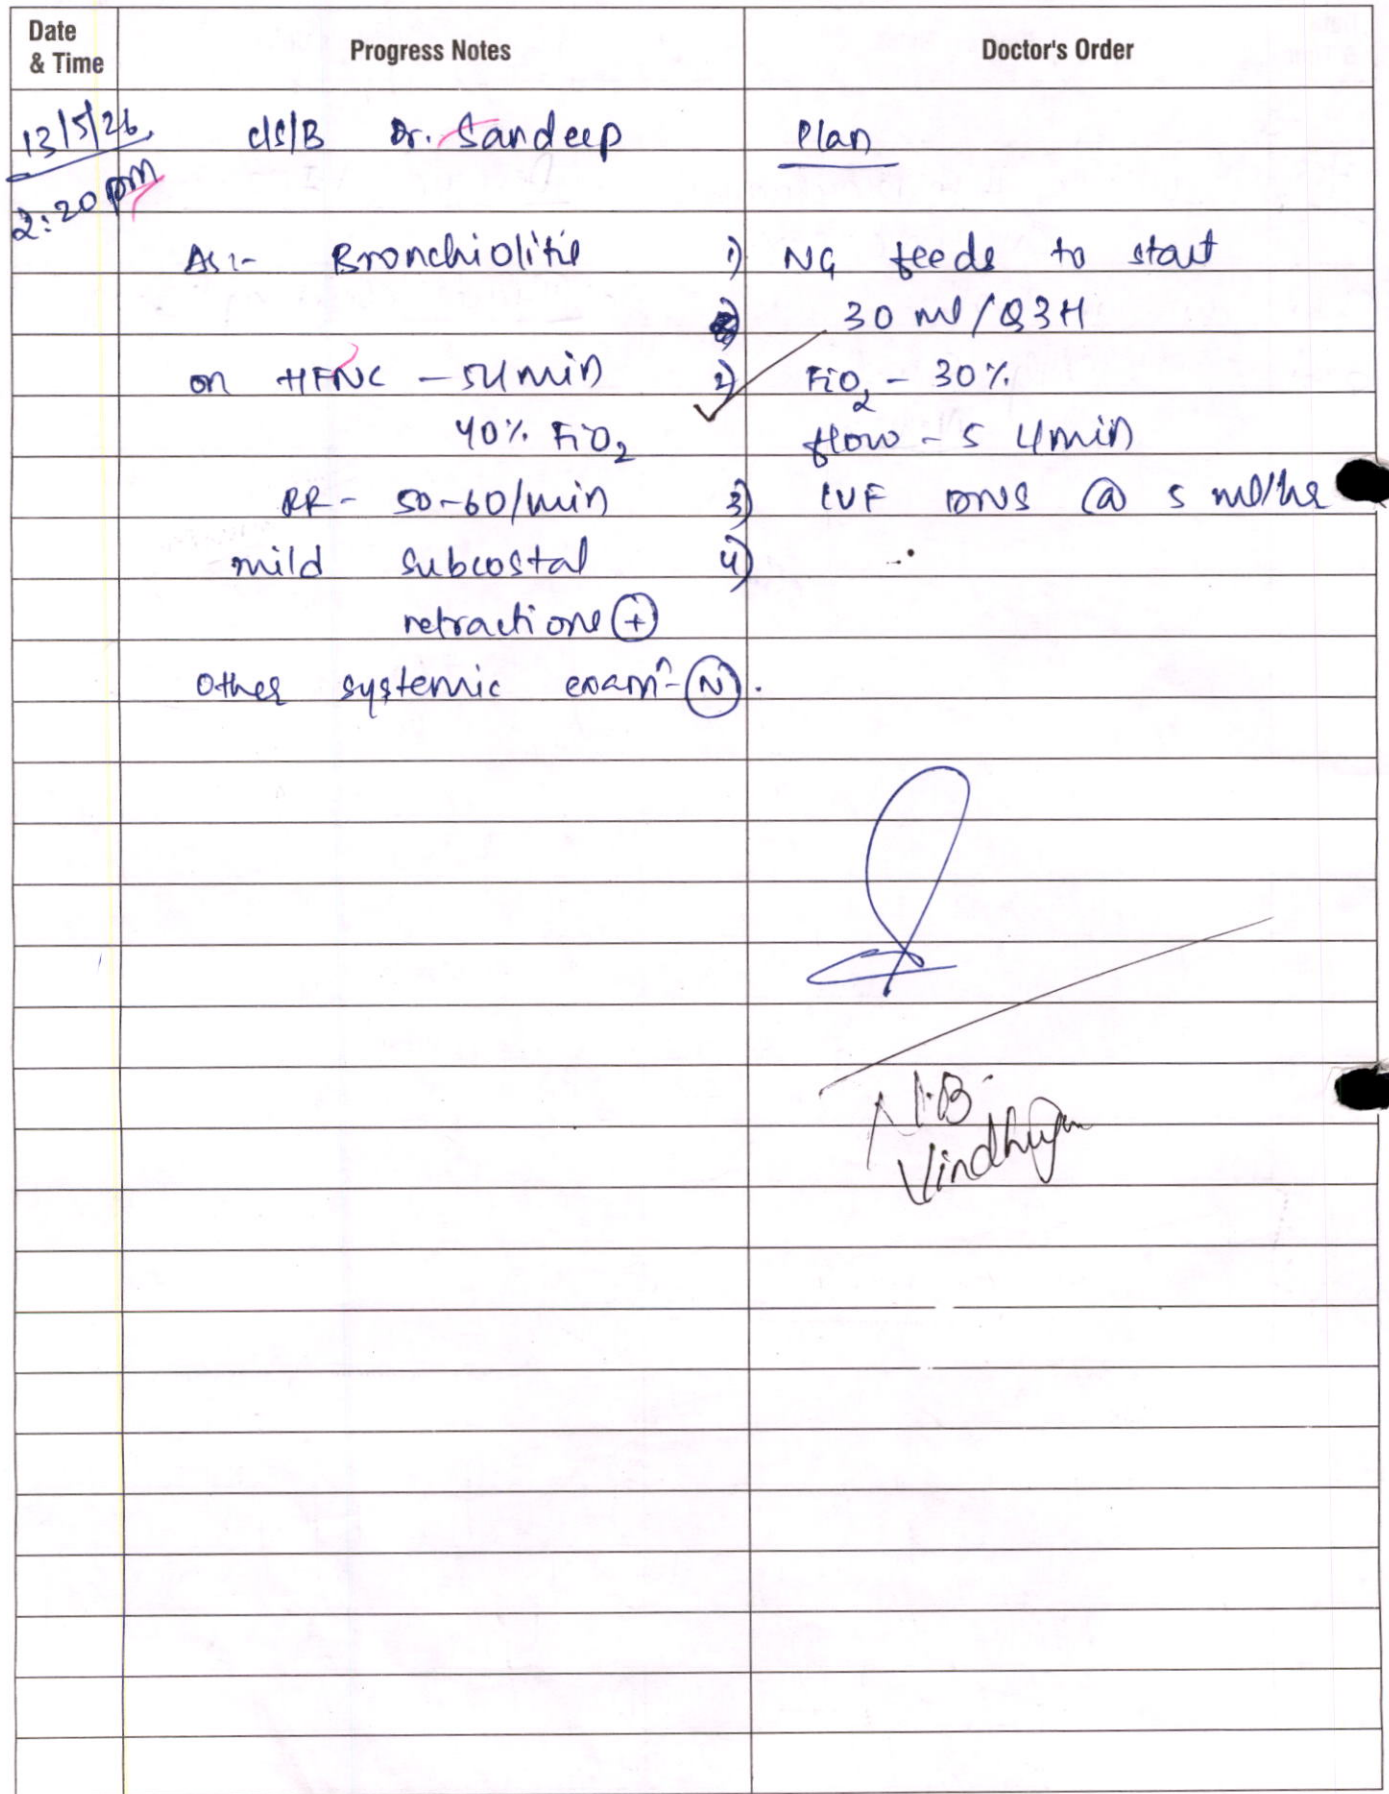 Date & Time
Progress Notes
Doctor's Order
13/5/26
2:20 pm
c/s/B Dr. Sandeep
As :- Bronchiolitis
on HFNC - 5 L/min
40% FiO2
RR - 50-60/min
mild subcostal
retractions (+)
Other systemic exam^n - (N).
Plan
1) NG feeds to start
30 ml/Q3H
2) FiO2 - 30%
flow - 5 L/min
3) IVF DNS @ 5 ml/hr
4)
N.B